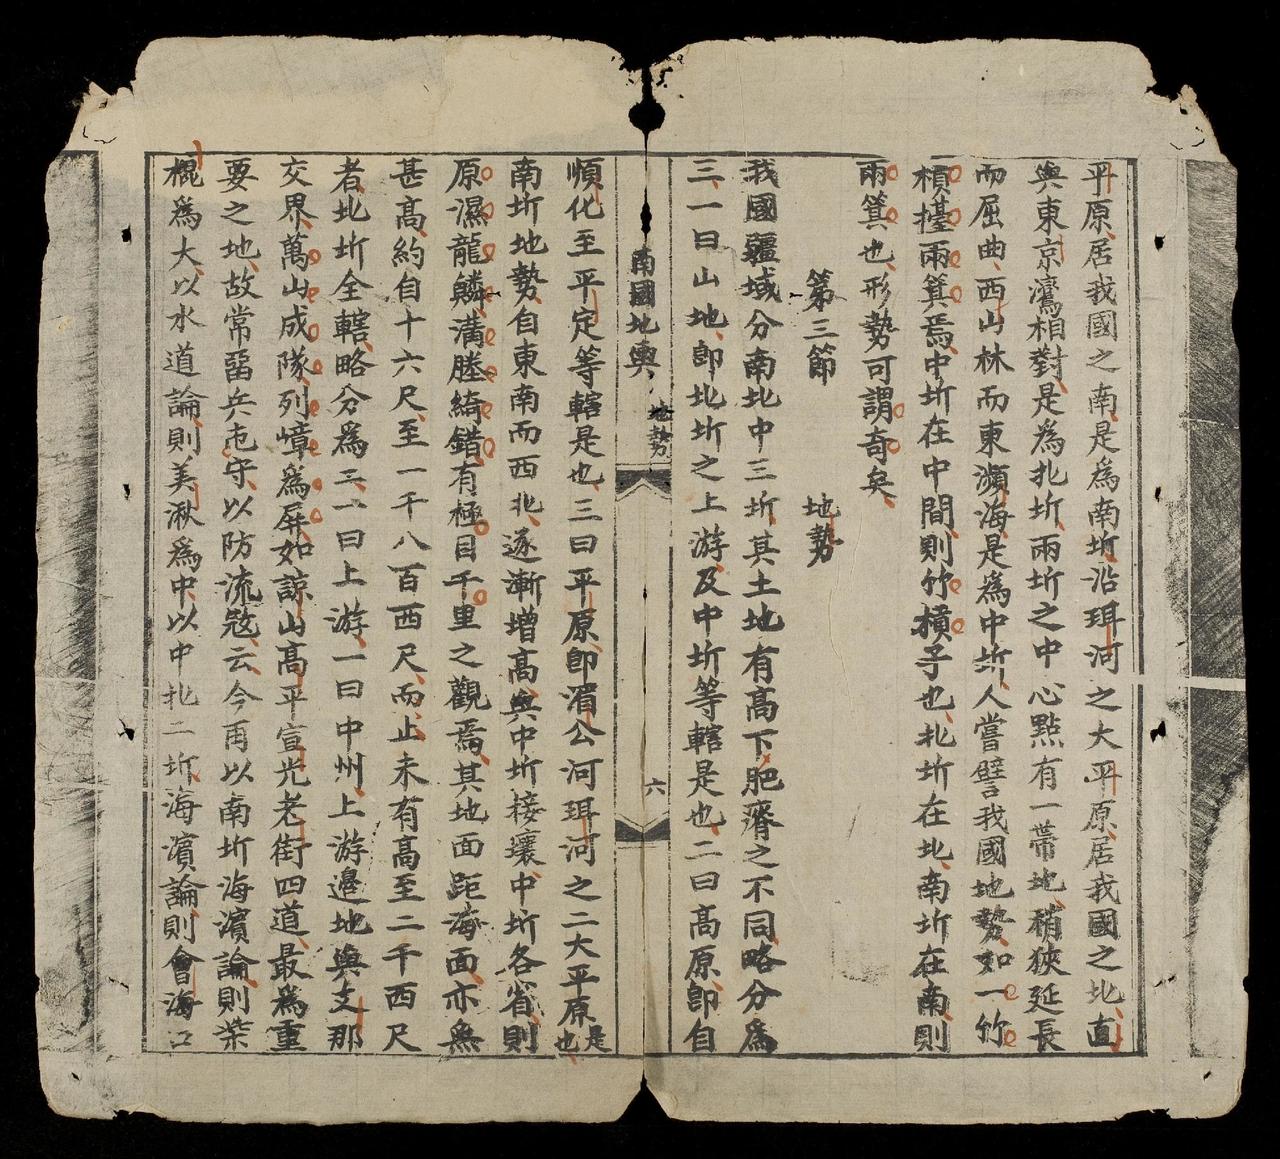 平原居我國之南是為南圻沿珥河之大平原居我國之北直
與東京灣相對是為北圻兩圻之中心點有一帶地稍狹延長
而屈曲西山林而東瀕海是為中圻人嘗譬我國地勢如一竹
槓擡兩箕焉中圻在中間則竹槓子也北圻在北南圻在南則
兩箕也形勢可謂奇矣
第三節 地勢
我國疆域分南北中三圻其土地有高下肥瘠之不同略分為
三一曰山地即北圻之上游及中圻等轄是也二曰高原即自
南國地輿 地勢 六
順化至平定等轄是也三曰平原即湄公河珥河之二大平原是也
南圻地勢自東南而西北逐漸增高與中圻接壤中圻各省則
原濕龍鱗溝塍綺錯有極目千里之觀焉其地面距海面亦無
甚高約自十六尺至一千八百西尺而止未有高至二千西尺
者北圻全轄略分為三一曰上游一曰中州上游邊地與支那
交界萬山成隊列嶂為屏如諒山高平宣光老街四道最為重
要之地故常畱兵屯守以防流寇云今再以南圻海濱論則柴
棍為大以水道論則美湫為中以中北二圻海濱論則會海口